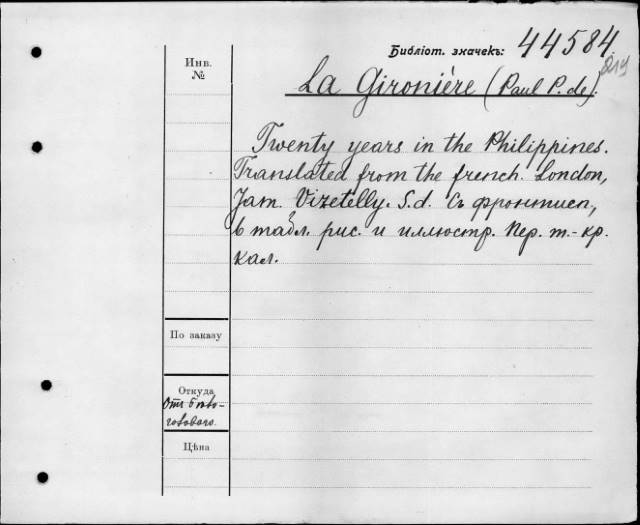 Библіот. значекъ: 44584.
Инв.
№
La Gironière (Paul P. de).
Twenty years in the Philippines.
Translated from the french. London,
Jam. Vizetelly. S. d. Съ фронтисп.,
6 табл. рис. и иллюстр. Пер. т.-кр.
кал.
По заказу
Откуда
Отъ
Цѣна